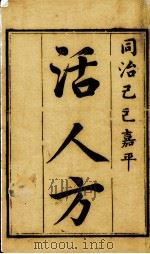 同治己巳嘉平
活人方
mtoou.info
mtoou.info